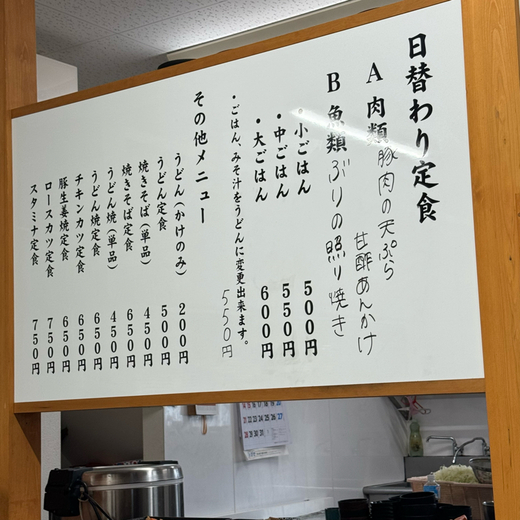 日替わり定食
A 肉類 豚肉の天ぷら
甘酢あんかけ
B 魚類 ぶりの照り焼き
・小ごはん 500円
・中ごはん 550円
・大ごはん 600円
・ごはん、みそ汁をうどんに変更出来ます。
550円
その他メニュー
うどん(かけのみ) 200円
うどん定食 500円
焼きそば(単品) 450円
焼きそば定食 650円
うどん焼(単品) 450円
うどん焼定食 650円
チキンカツ定食 650円
豚生姜焼定食 650円
ロースカツ定食 750円
スタミナ定食 750円